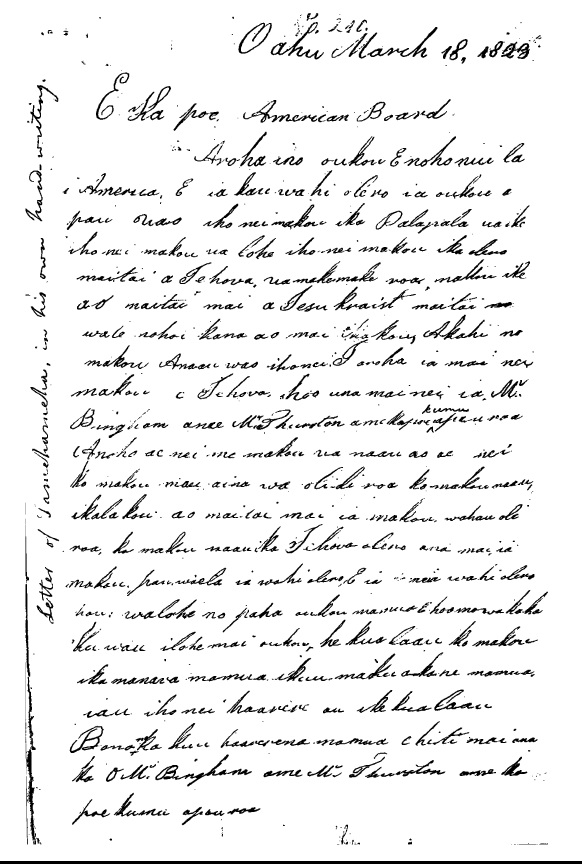 P. 246.
Oahu March 18, 1823
E Ka poe American Board
Aroha ino oukou E noho nui la
i America, E ia kau wahi olero ia oukou a
pau iho nei makou ika Palapala ua ike
iho nei makou ua lohe iho nei makou ika olero
maitai a Jehova, ua makemake roa makou ike
ao maitai mai a Jesu kraist maitai no
wale no hoi kana ao mai Akahi no
makou A naau iho nei I aroha ia mai nei
makou e Jehova, hoo una mai nei ia, Mr.
Bingham ame Mr. Thurston ame ka poe kumu apau roa
A noho ae nei me makou ua naau ao ae nei
ko makou mau aina wa olidi roa ko makou naau,
ikala kou ao maitai mai ia makou, ole
roa, ko makou naau ika Jehova olero ana mai ia
makou, pau ia wahi olero, E ia neia wahi olero
hou: ua lohe no paha oukou mamua
Ku wau i lohe mai oukou, he kua laau ko makou
ika manava mamua i kuu makua kane mamua,
iau iho nei haarire au ika kua laau
ka kuu haarerena mamua e hiti mai ana
ka O Mr. Bingham ame Mr. Thurston ame ka
poe kumu apau roa
Letter of Tamehameha, in his own hand-writing.